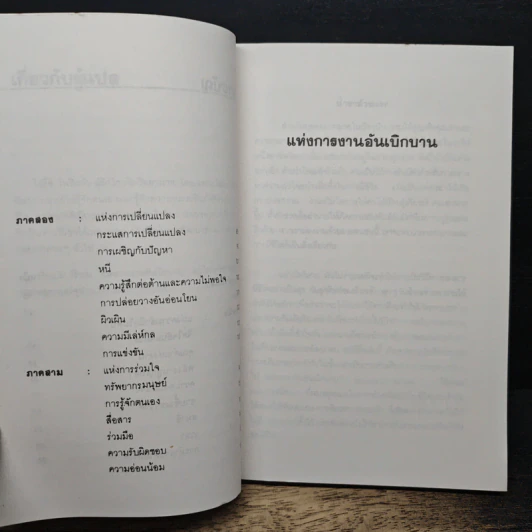 ภาคสอง : แห่งการเปลี่ยนแปลง
กระแสการเปลี่ยนแปลง
การเผชิญกับปัญหา
หนี
ความรู้สึกต่อต้านและความไม่พอใจ
การปล่อยวางอันอ่อนโยน
ผิวเผิน
ความมีเล่ห์กล
การแข่งขัน
ภาคสาม : แห่งการร่วมใจ
ทรัพยากรมนุษย์
การรู้จักตนเอง
สื่อสาร
ร่วมมือ
ความรับผิดชอบ
ความอ่อนน้อม
แห่งการงานอันเบิกบาน